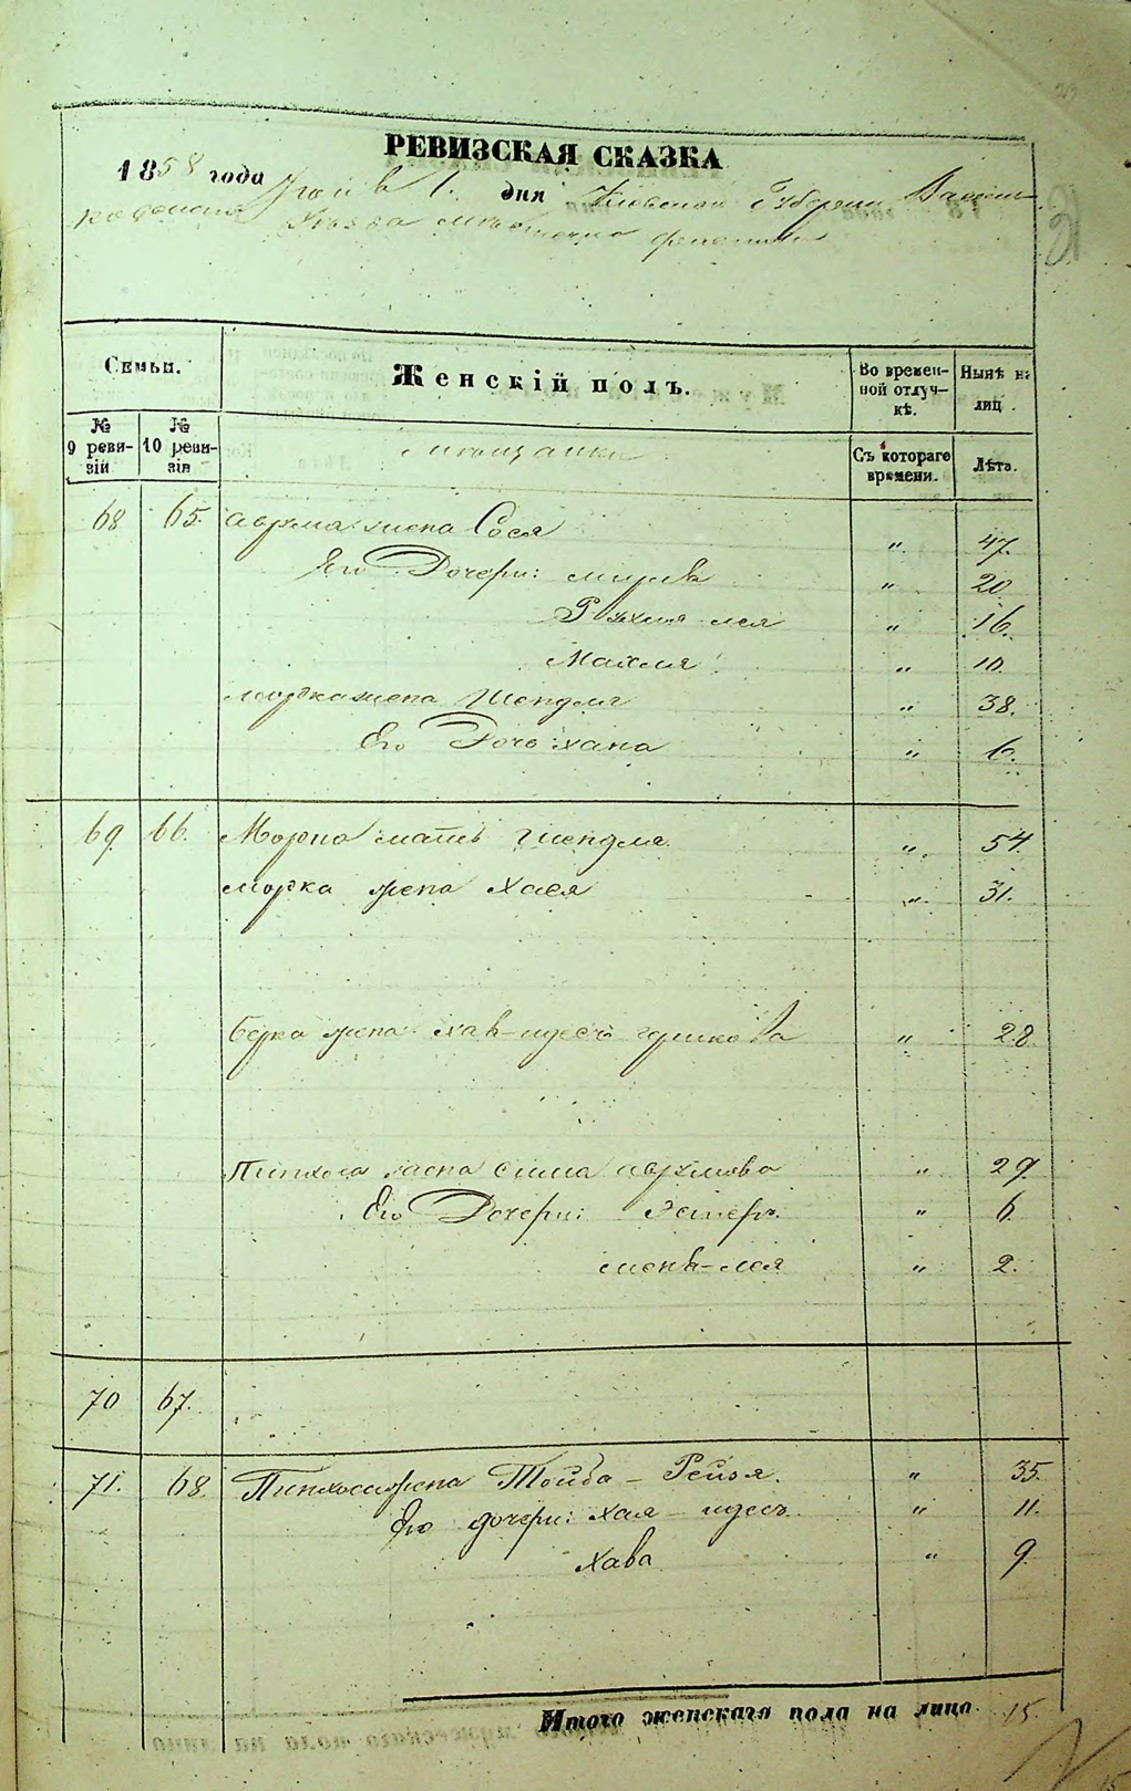 РЕВИЗСКАЯ СКАЗКА
1858 года Юнiя 1. дня Кіевской Губерніи Василь-
ковскаго Уѣзда мѣстечка
Семьи.
Женскій полъ.
Во времен-
ной отлуч-
кѣ.
Нынѣ на
лиц .
№
9 реви-
зіи
№
10 реви-
зія
мѣщанки
Съ котораго
времени.
Лѣта.
68 65. Аврума жена Сося " 47.
Его Дочери: " 20
Рухля лея " 16.
Малля " 10.
мордка жена Шендля " 38.
Его Дочь хана " 6.
69 66. мать Шендля " 54.
морка жена Хася " 31.
Берка жена хав-идесъ " 28
Пинхоса жена сима аврумова " 29
Его Дочери: Эстеръ. " 6
-лея " 2.
70 67.
71. 68. Пинхоса жена Тойба - Рейзя. " 35.
Его дочери: хая - идесъ " 11.
хава " 9
Итого женскаго пола на лицо 15.